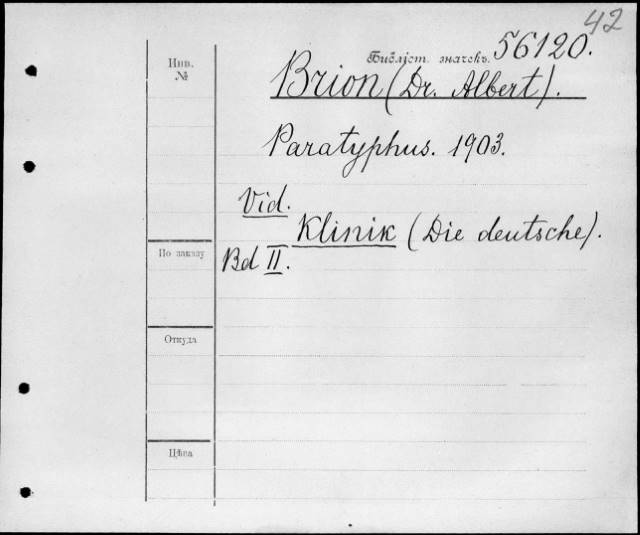 42
Инв.
№
Библіот. значекъ. 56120.
Brion (Dr. Albert).
Paratyphus. 1903.
Vid.
Klinik (Die deutsche).
По заказу
Bd II.
Откуда
Цѣна